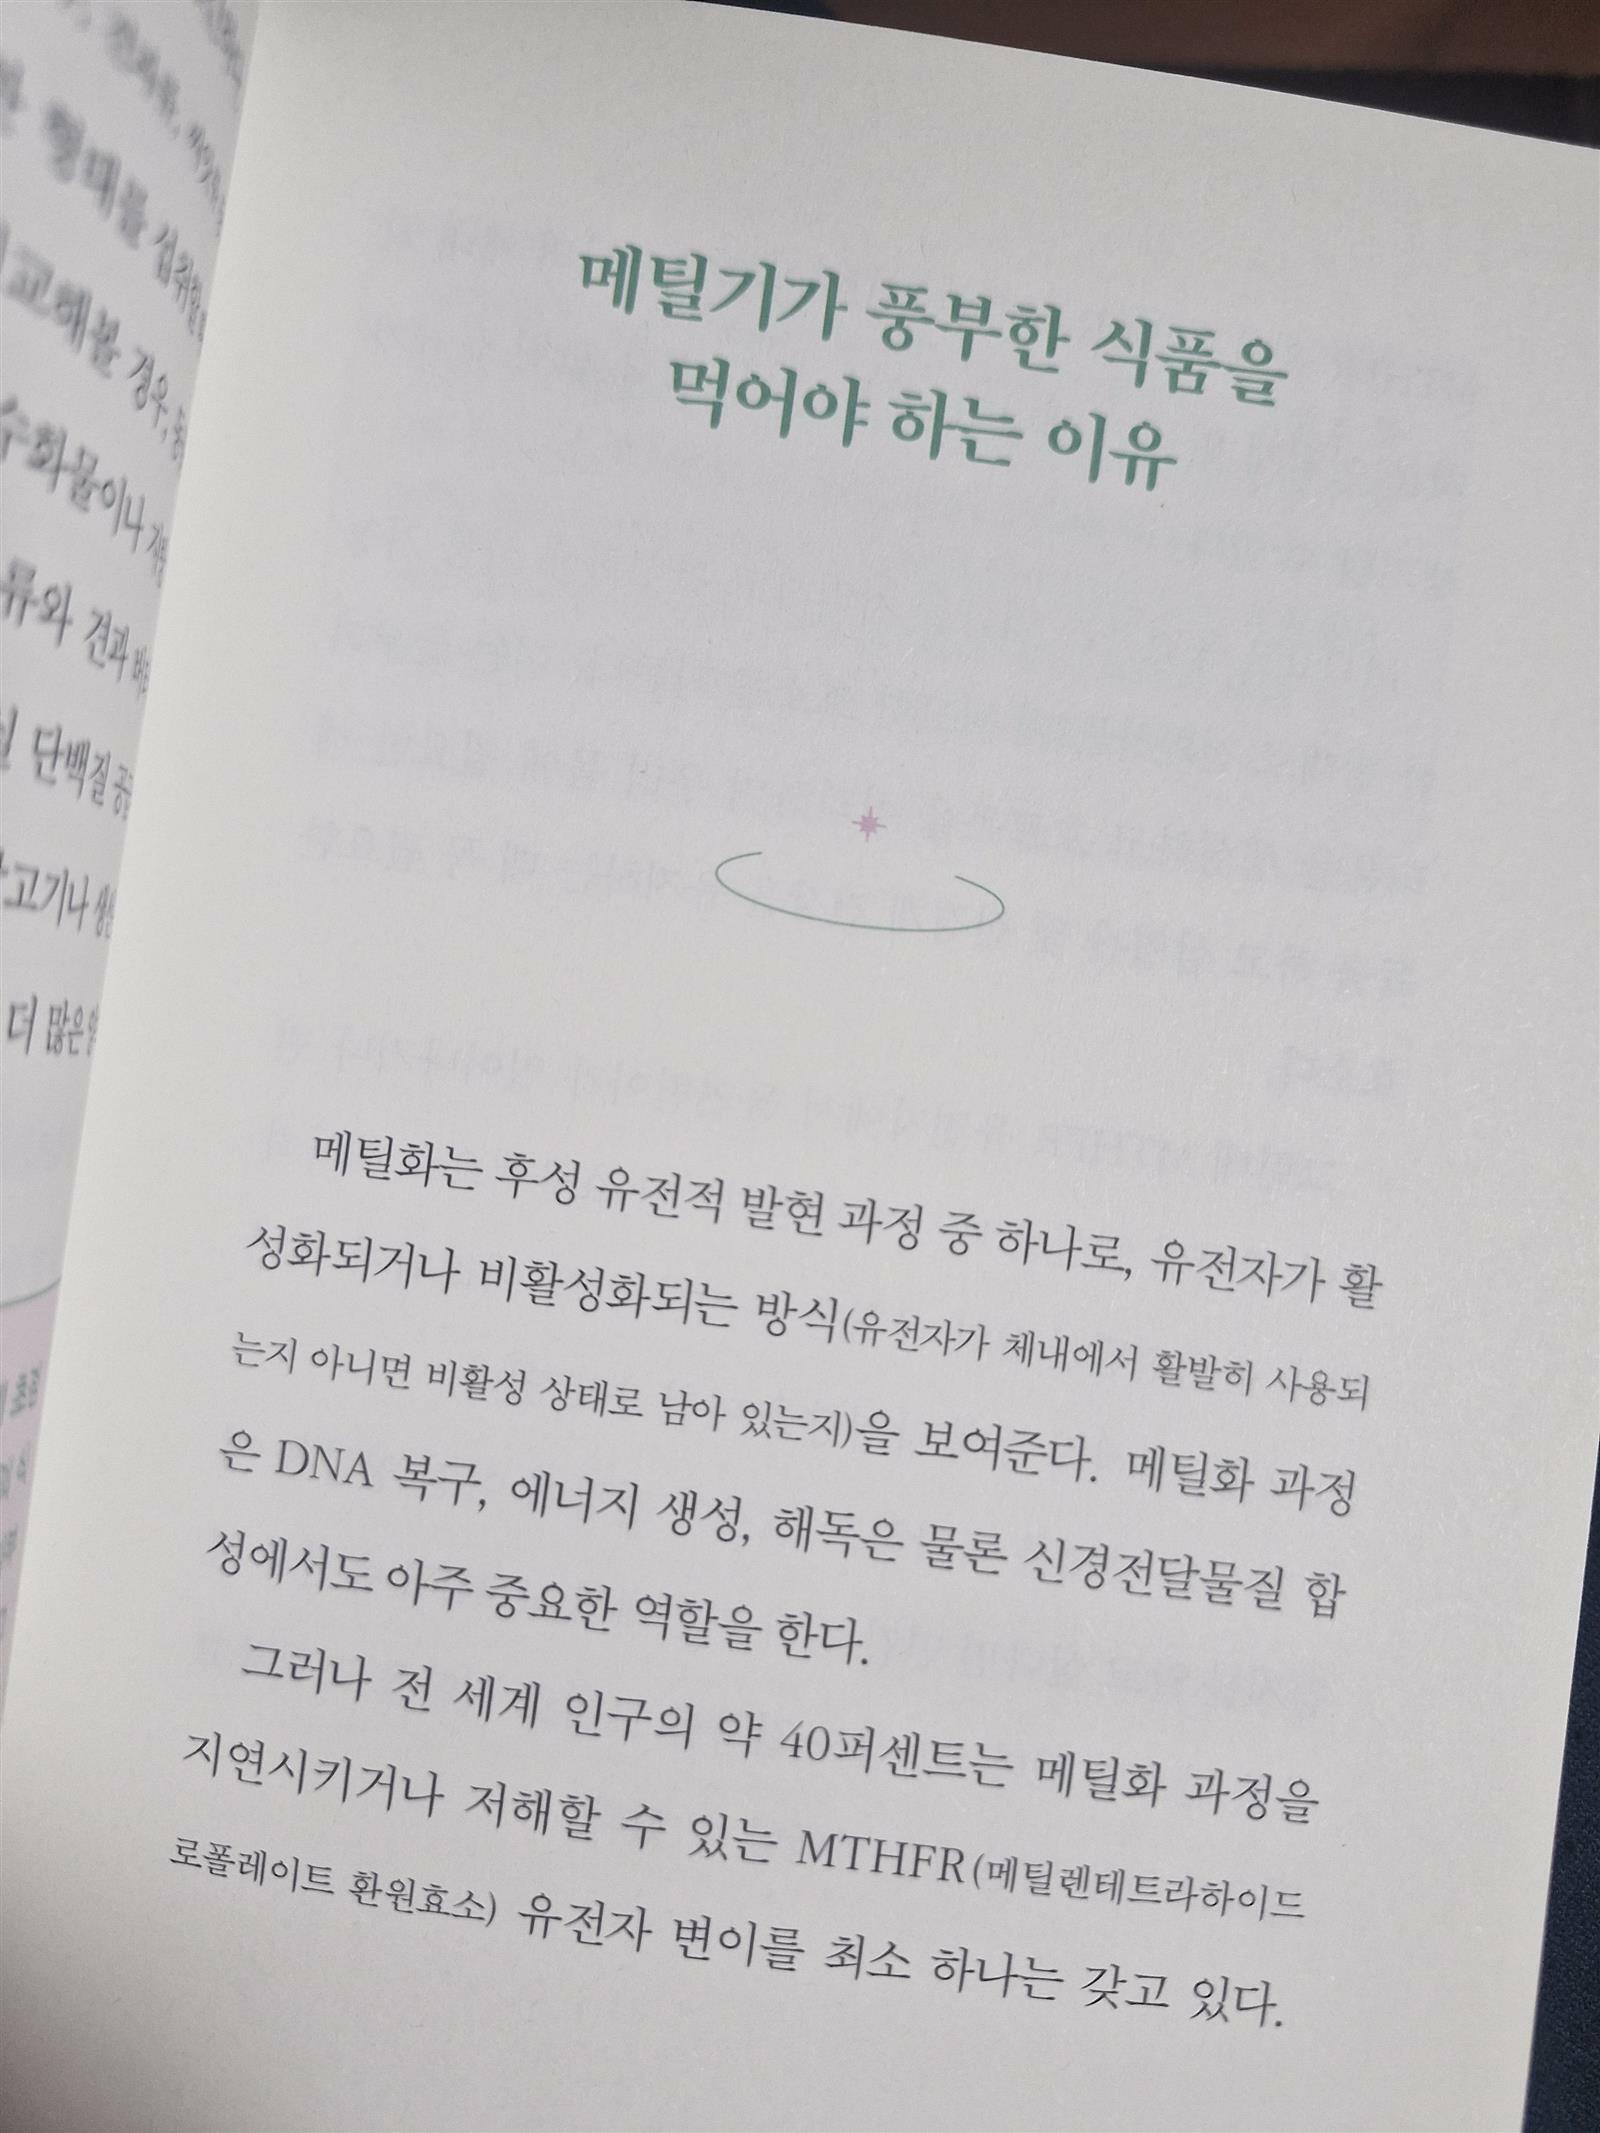 형태를 섭취할
교해볼 경우,
수화물이나
류와 견과
단백질
고기나
더 많은
메틸기가 풍부한 식품을
먹어야 하는 이유
메틸화는 후성 유전적 발현 과정 중 하나로, 유전자가 활
성화되거나 비활성화되는 방식(유전자가 체내에서 활발히 사용되
는지 아니면 비활성 상태로 남아 있는지)을 보여준다. 메틸화 과정
은 DNA 복구, 에너지 생성, 해독은 물론 신경전달물질 합
성에서도 아주 중요한 역할을 한다.
그러나 전 세계 인구의 약 40퍼센트는 메틸화 과정을
지연시키거나 저해할 수 있는 MTHFR(메틸렌테트라하이드
로폴레이트 환원효소) 유전자 변이를 최소 하나는 갖고 있다.